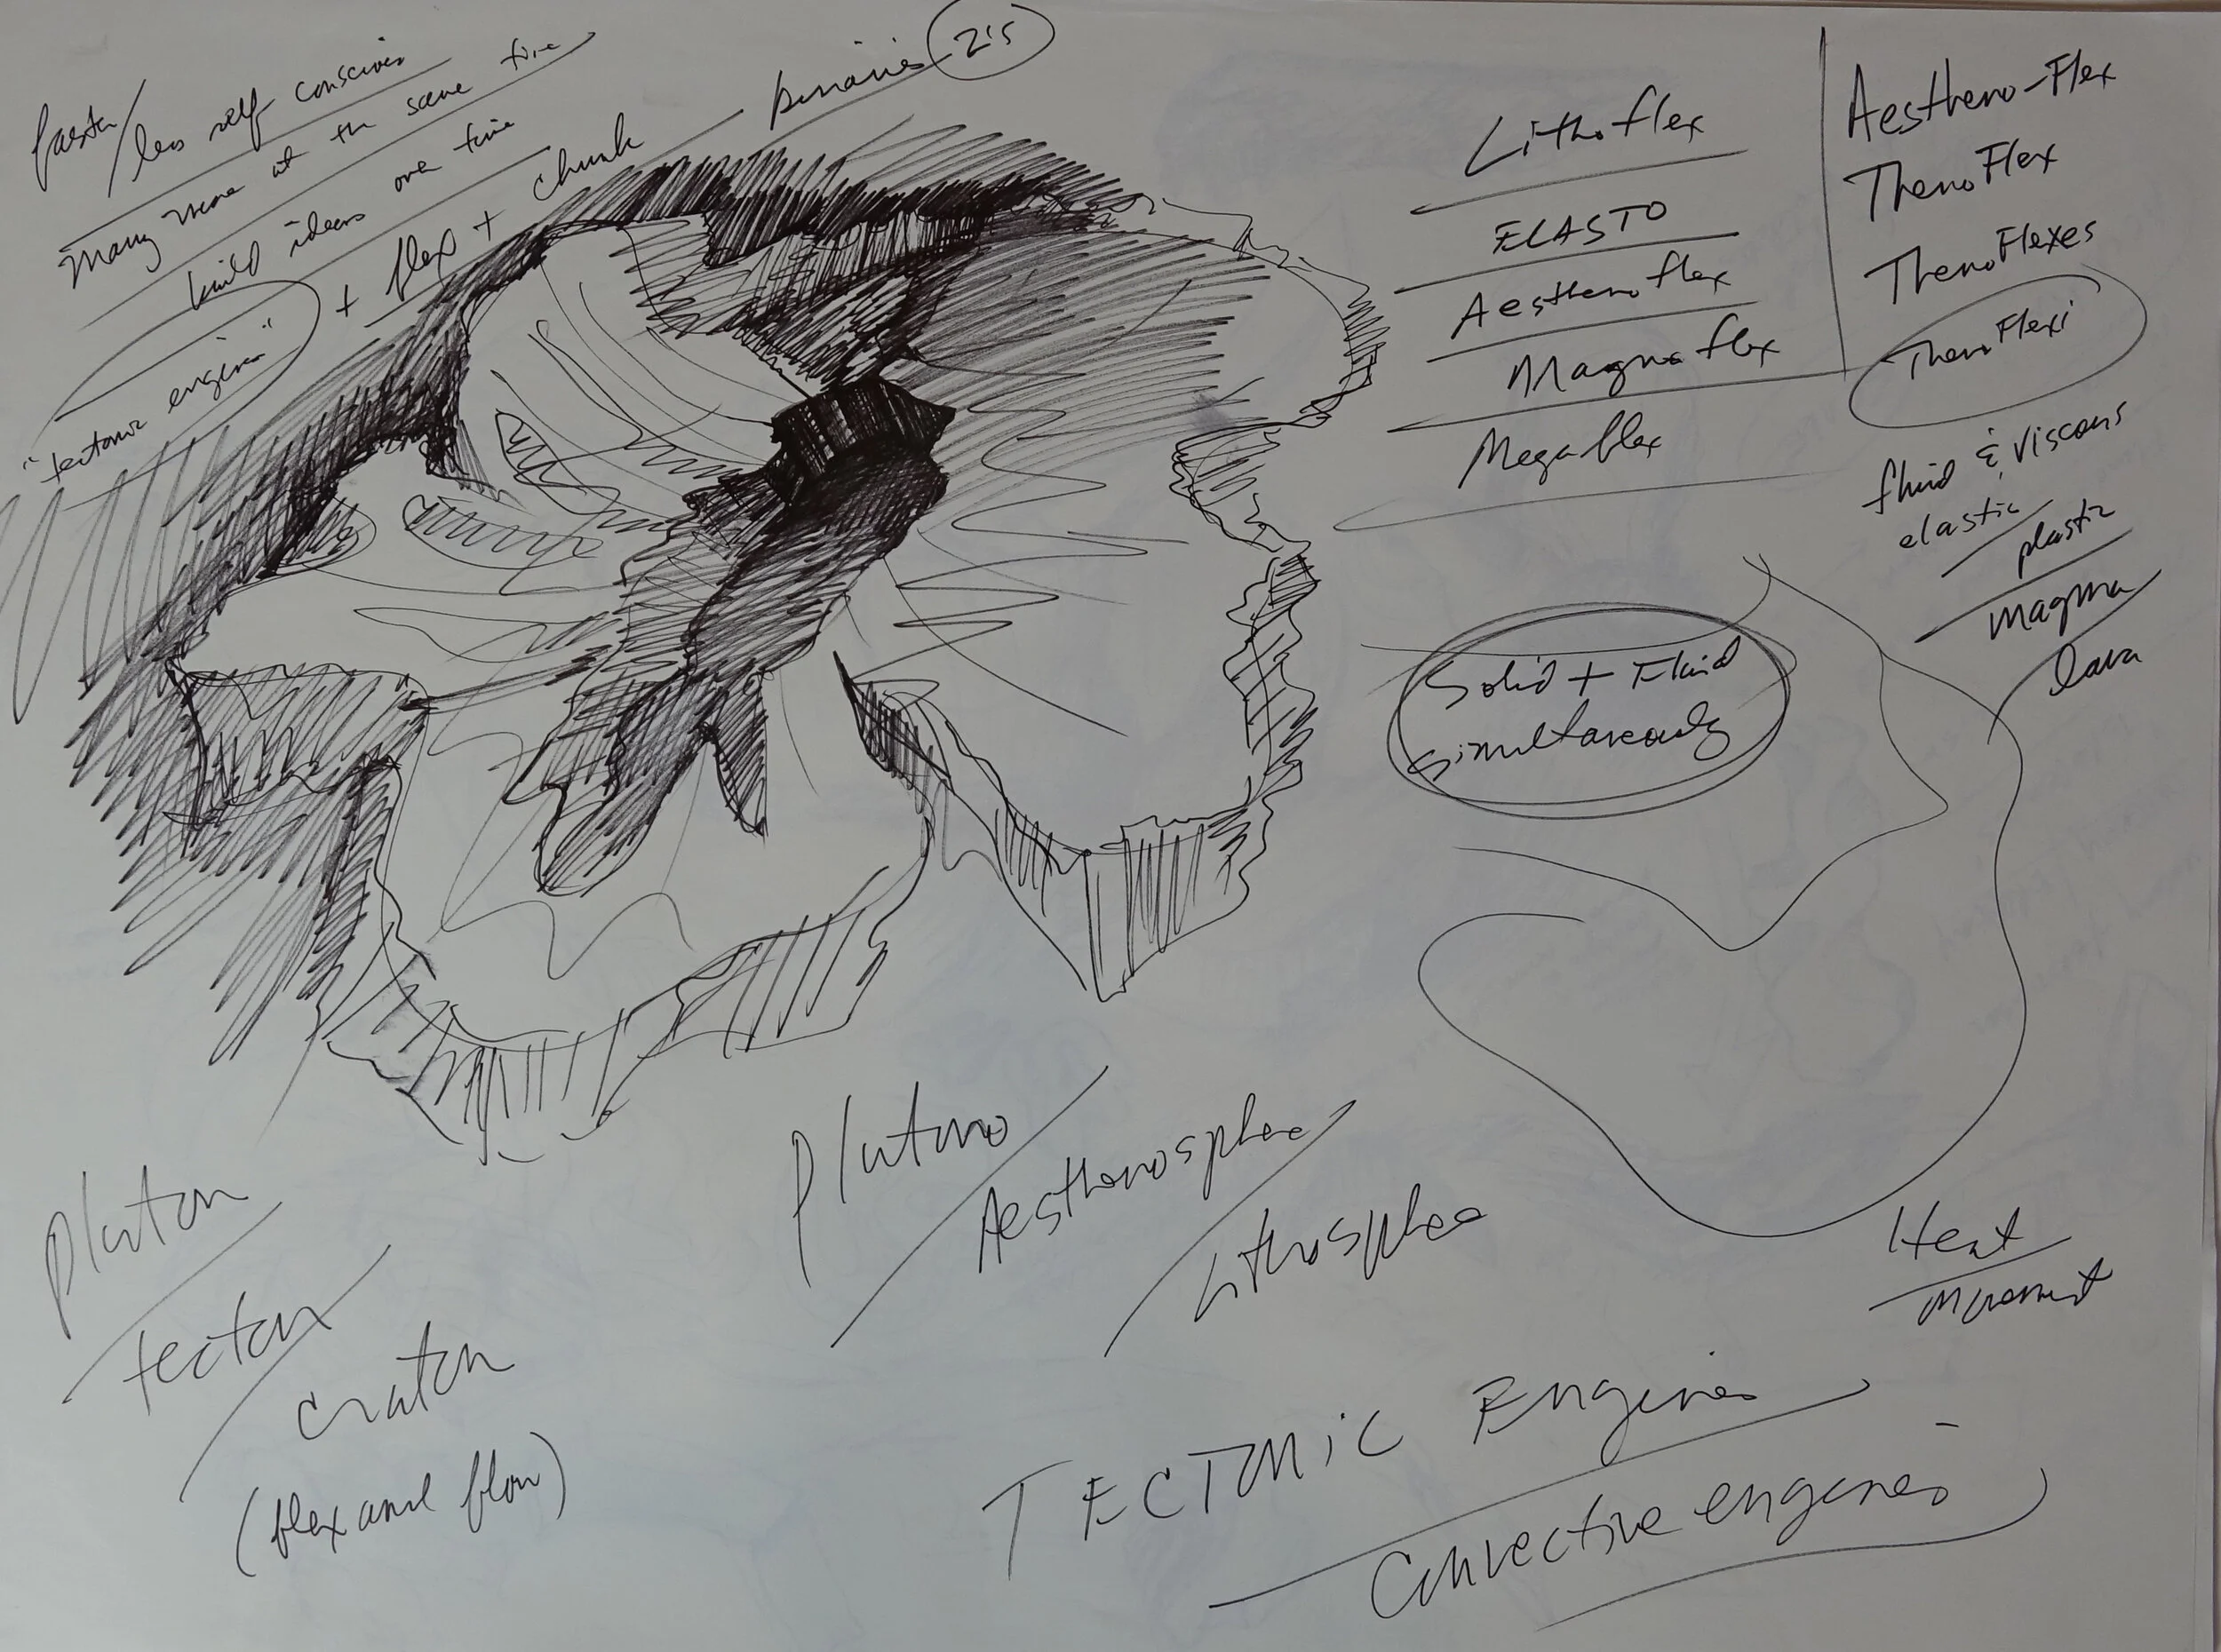 faster/
less self conscious
many more at the same time
build ideas over time
"tectonic engines" + flex + chunk
binaries 2's
Lithoflex
ELASTO
Aesthenoflex
Magmaflex
Megaflex
Aestheno-Flex
Theno Flex
Theno Flexes
Theno Flexi
fluid & viscous
elastic
plastic
magma
lava
Solid + Fluid
simultaneously
Pluton
tecton
craton
(flex and flow)
Plutono
Aesthenosphere
Lithosphere
Heat
movement
TECTONIC Engines
Convective engines